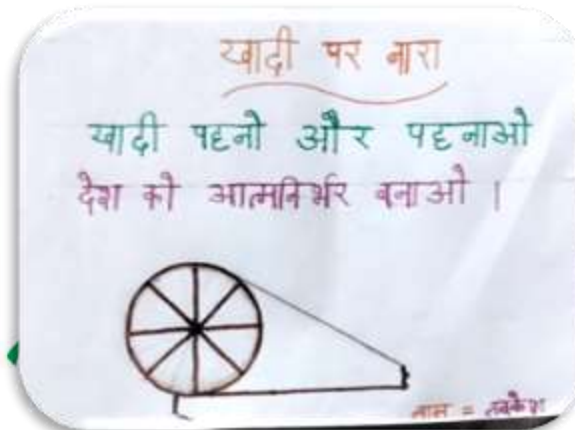 खादी पर नारा
खादी पहनो और पहनाओ
देश को आत्मनिर्भर बनाओ ।
नाम =